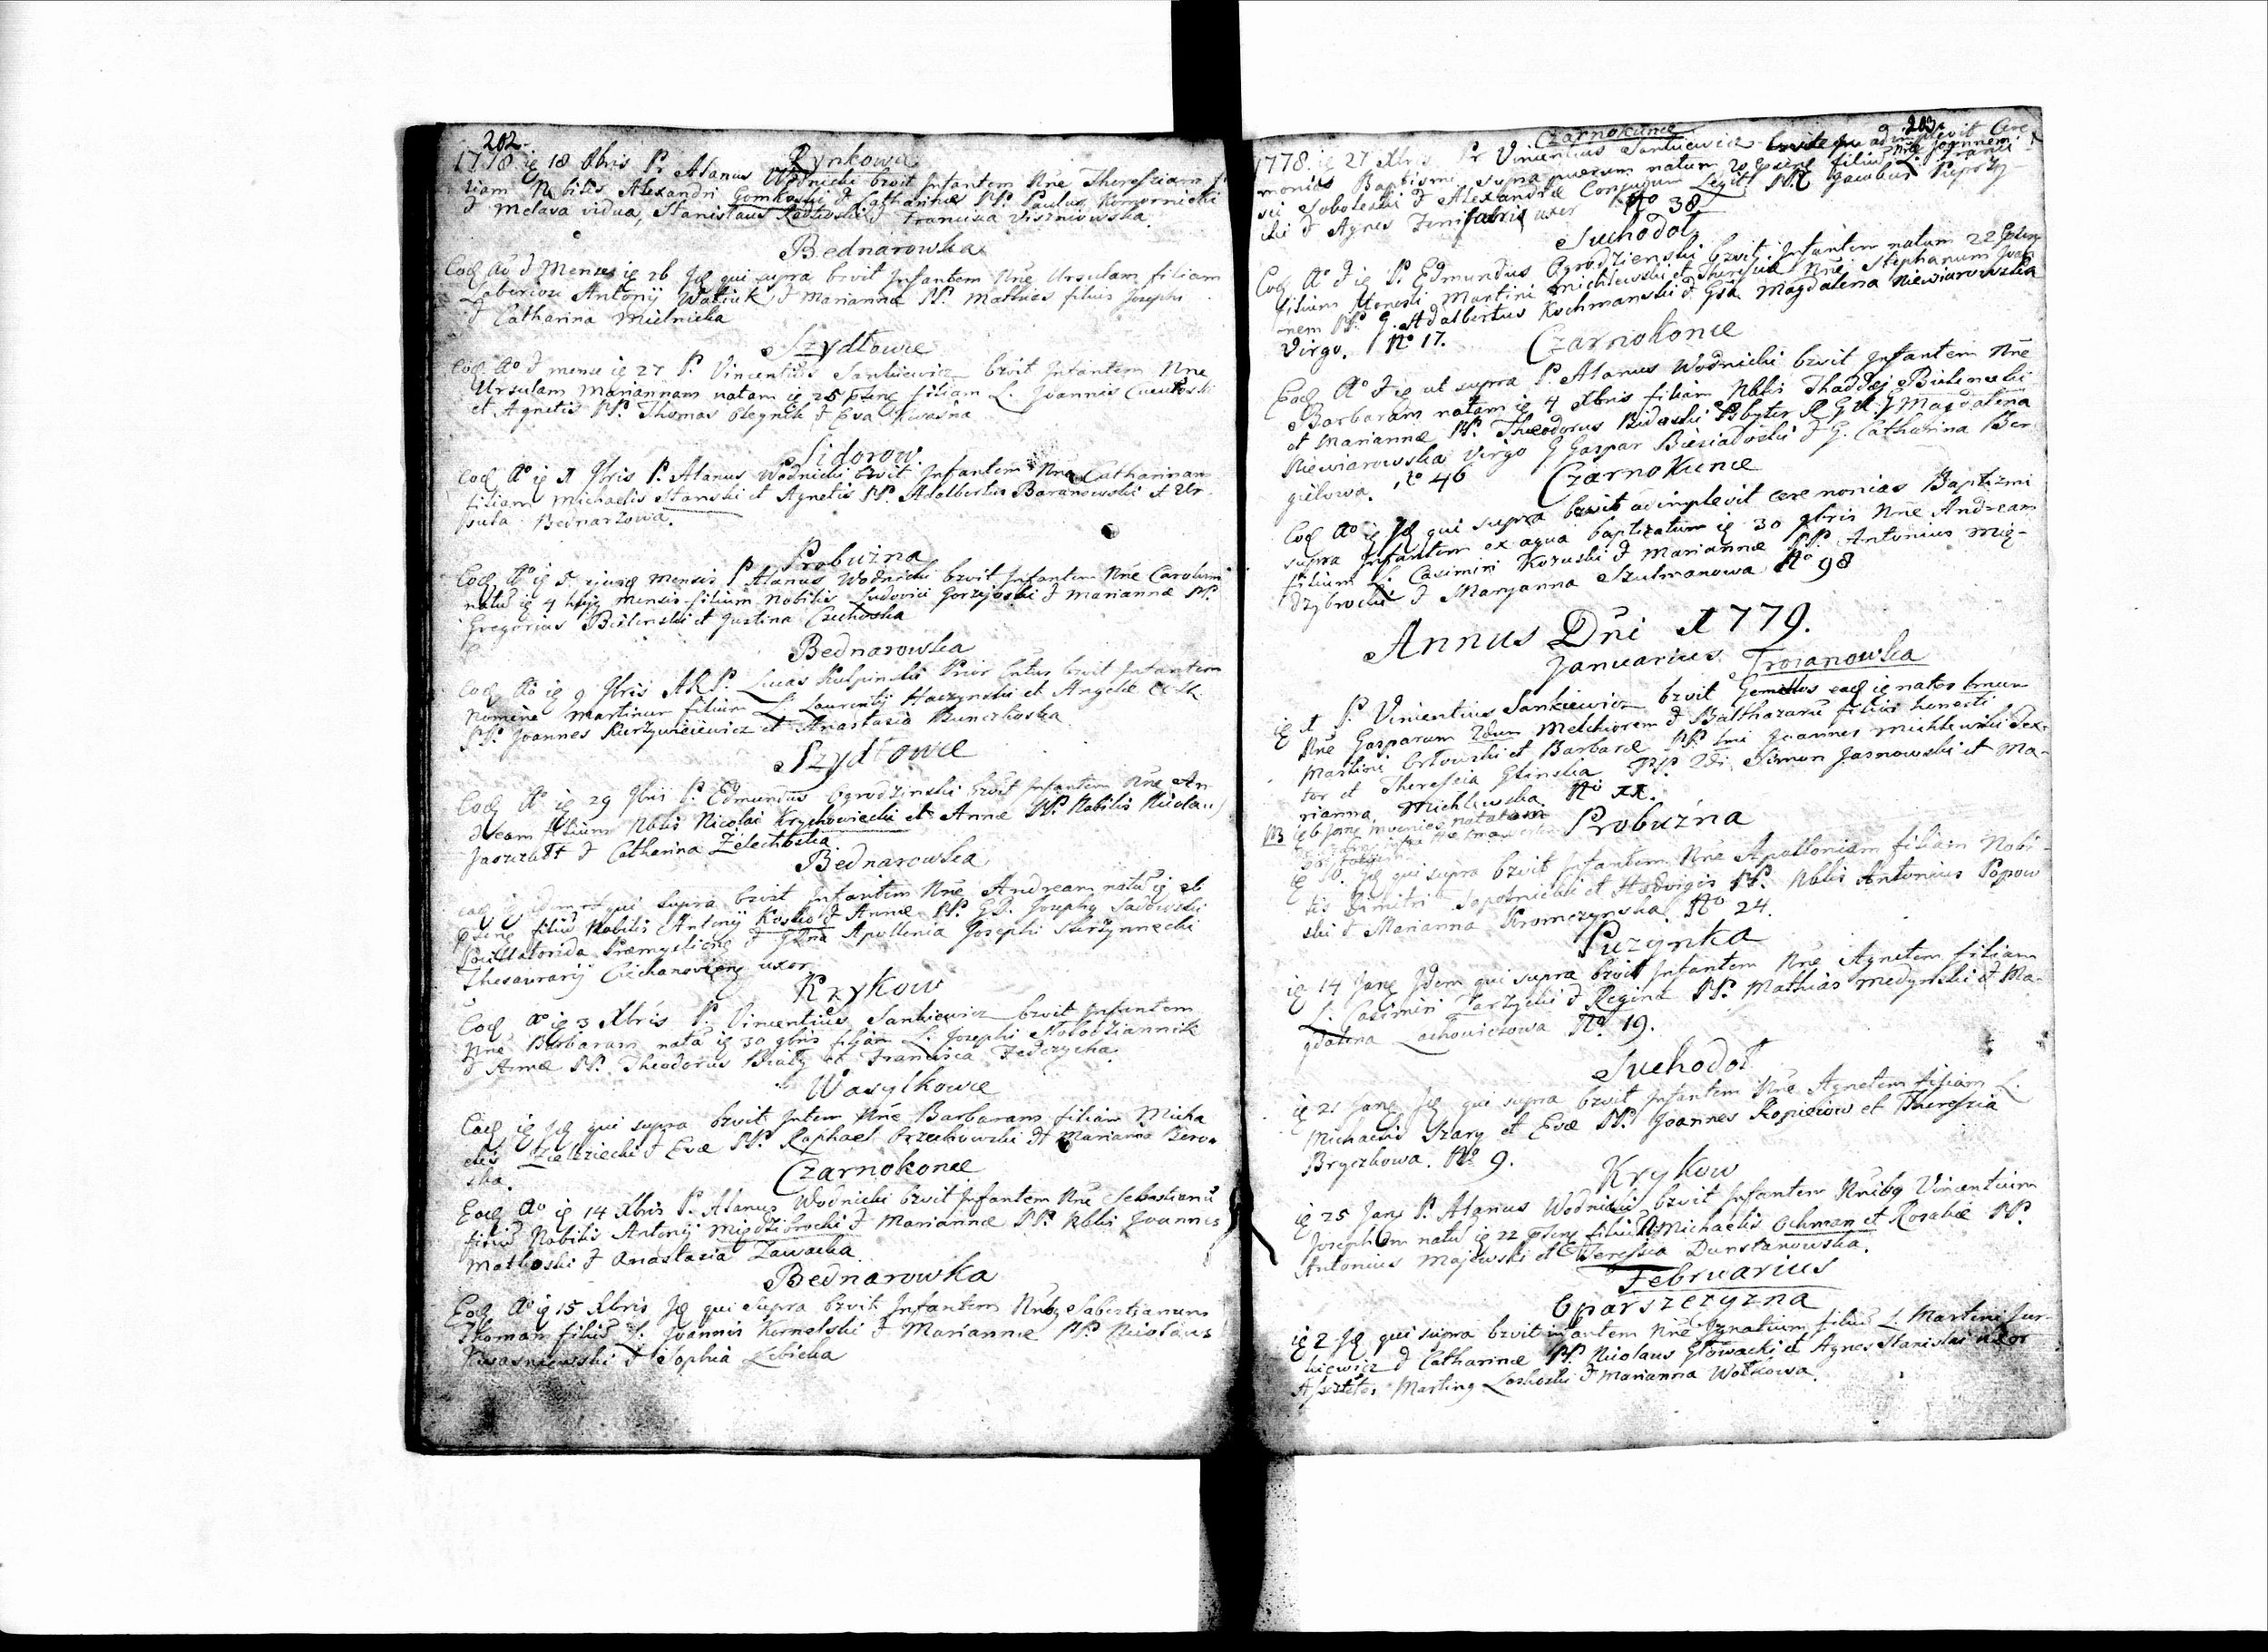 202.
Rynkowce
1778 ię 18 Xbris P. Alanus Wodnicki bzvit Infantem Nñe Theressiam fi
liam Nobilis Alexandri Gomkowski & Catharinæ PP. Paulus Komornicki
& Melara vidua, Stanislaus Radowski & Francisca Wiszniowska
Bednarowka
Eod Aõ & Mense ię 26 Id qui supra bzvit Infantem Nñe Ursulam filiam
Laboriosi Antonij Waliuk & Mariannæ PP. Mathias filius Josephi
& Catharina Mielnicka
Szydłowce
Eod Aº & mense ię 27 P. Vincentius Sankiewicz bzvit Infantem Nñe
Ursulam Mariannam natam ię 25 psene filiam L. Joannis
et Agnetis PP. Thomas Oleynik & Eva Kwasna
Sidorow
Eod Aº ię 1 9bris P. Alanus Wodnicki bzvit Infantem Nñe Catharinam
filiam Michaelis Stanski et Agnetis PP. Adalbertus Baranowski et Ur-
sula Bednarzowa.
Probużna
Eod Aº ię 5 ejusd mensis P. Alanus Wodnicki bzvit Infantem Nñe Carolum
natũ ię 4 hujg mensis filium Nobilis Ludovici Gorzyoski & Mariannæ PP.
Gregorius Bielinski et Justina Czechoska
Bednarowka
Eod Aº ię 9 9bris ARP. Lucas Kulpinski Prior bzvit Infantem
Nomine Martinum filium L. Laurentij Haczynski et Angelæ
PP. Joannes Kurzywieiewicz et Anastasia Bunczkoska
Szydłowce
Eod Aº ię 29 9bris P. Edmundus Ogrodzinski bzvit Infantem Nñe An
dream filium Nblis Nicolai Krychowiecki et Annæ PP. Nobilis Nicolaus
Jaszczułt & Catherina Zelechoska
Bednarowka
qui supra bzvit Infantem Nñe Andream natũ ię 26
psene filiũ Nobilis Antonij Kosko & Annæ PP. GD. Josephg Sadowski
Przemysliene & GDna Apollonia Josephi Skrzynnecki
Thesaurarij Ciechanoviene uxor
Krzykow
Eod Aº ię 3 Xbris P. Vincentius Sankiewicz bzvit Infantem
Nñe Barbaram natã ię 30 9bris filiam L. Josephi Mołodziannik
& Annæ PP. Theodorus Biały et Francisca Fedczycha
Wasylkowce
Eod ię Id qui supra bzvit Intem Nñe Barbaram filiam Micha
elis Zieliziecki & Evæ PP. Raphael Orzechowski & Marianna Bero
ska.
Czarnokonce
Eod Aº ię 14 Xbris P. Alanus Wodnicki bzvit Infantem Nñe Sebastianũ
filiũ Nobilis Antonij Międzibrocki & Mariannæ PP. Nblis Joannes
Matkoski & Anastasia Zawacka
Bednarowka
Eod Aº ię 15 Xbris Id qui supra bzvit Infantem Nñibg Sabestianum
Thomam filiũ L. Joannis Kornelski & Mariannæ PP. Nicolaus
Kwasniewski & Sophia Zebicka
203.
Czarnokunce
1778 ię 27 Xbris Pr Vincentius Sankiewicz adimplevit Cere
monias Baptismi supra puerum natum 20 psene filiũ Nñe Joannem L. Franci
sci Soboleski & Alexandræ Conjugum Legit. PP. Jacobus Pieprzy
cki & Agnes fabri uxor Nº 38
Suchodoł
Eod Aº & ię P. Edmundus Ogrodzienski bzvit Infantem natum 22 psene
filium Honesti Martini Michlewski et Theresiæ Nñe Stephanum Joan
nem PP. G. Adalbertus Kochmanski & Gsa Magdalena Niewiarowska
Virgo. Nº 17.
Czarnokonce
Eod Aº & ię ut supra P. Alanus Wodnicki bzvit Infantem Nñe
Barbaram natam ię 4 Xbris filiam Nblis Thaddæj Bielinski
et Mariannæ PP. Theodorus Bidoski Psbyter R G U. G Magdalena
Niewiarowska Virgo G Gaspar Biesiadoski & G. Catharina Ber
gielowa. Nº 46
Czarnokunce
Eod Aº ię Id qui supra bzvit adimplevit ceremonias Baptismi
supra Infantem ex aqua baptizatum ię 30 9bris Nñe Andream
filium L. Casimiri Koruski & Mariannæ PP. Antonius Mię-
dzybrocki & Maryanna Szulmanowa Nº 98
Annus Dñi 1779.
Januarius Troianowka
ię 1 P. Vincentius Sankiewicz bzvit Gemellos eod ię natos 1mum
Nñe Gasparum 2dum Melchiorem & Balthazarũ filios honesti
Martini Orłowski et Barbaræ PP. 1mi Joannes Michlewski Tex-
tor et Theressia Glinska. PP. 2di Simon Jasnowski et Ma-
rianna Michlewska. Nº XX.
NB
Probużna
ię 10. Id qui supra bzvit Infantem Nñe Apolloniam filiam Nobi-
lis Dimitri Sapotnicki et Hedvigis PP. Nblis Antonius Popow
ski & Marianna Kromczynska. Nº 24.
Puzynka
ię 14 Jane Idem qui supra bzvit Infantem Nñe Agnetem filiam
L. Casimiri Zarzycki & Reginæ PP. Mathias Medynski & Ma-
gdalena Lachowiczowa Nº 19.
Suchodoł
ię 21 Jane Id qui supra bzvit Infantem Nñe Agnetem filiam L.
Michaelis Szary et Evæ PP. Joannes Kopieiow et Theressia
Bryczkowa. Nº 9.
Krykow
ię 25 Jane P. Alanus Wodnicki bzvit Infantem Nñibg Vincentium
Josephum natũ ię 22 psene filiũ Michaelis Ochman et Rosaliæ PP.
Antonius Majewski et Teressia Dunstanowska.
Februarius
Oparszczyzna
ię 2 Id qui supra bzvit infantem Nñe Ignatium filiũ L. Martini Jur-
kiewicz & Catharinæ PP. Nicolaus Głowacki et Agnes Stanislai uxor
Assistētes Marting Laskoski & Marianna Wołkowa.